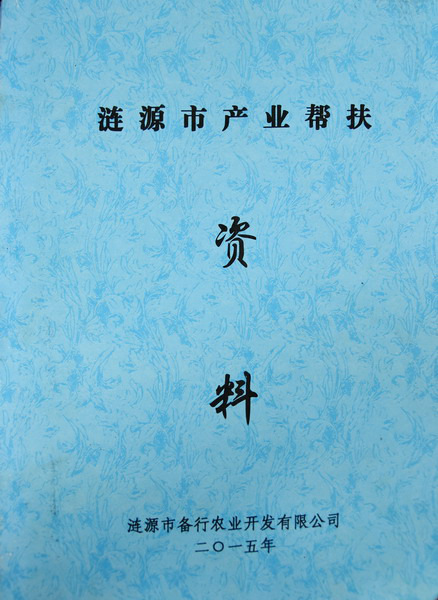 涟源市产业帮扶
资
料
涟源市备行农业开发有限公司
二〇一五年